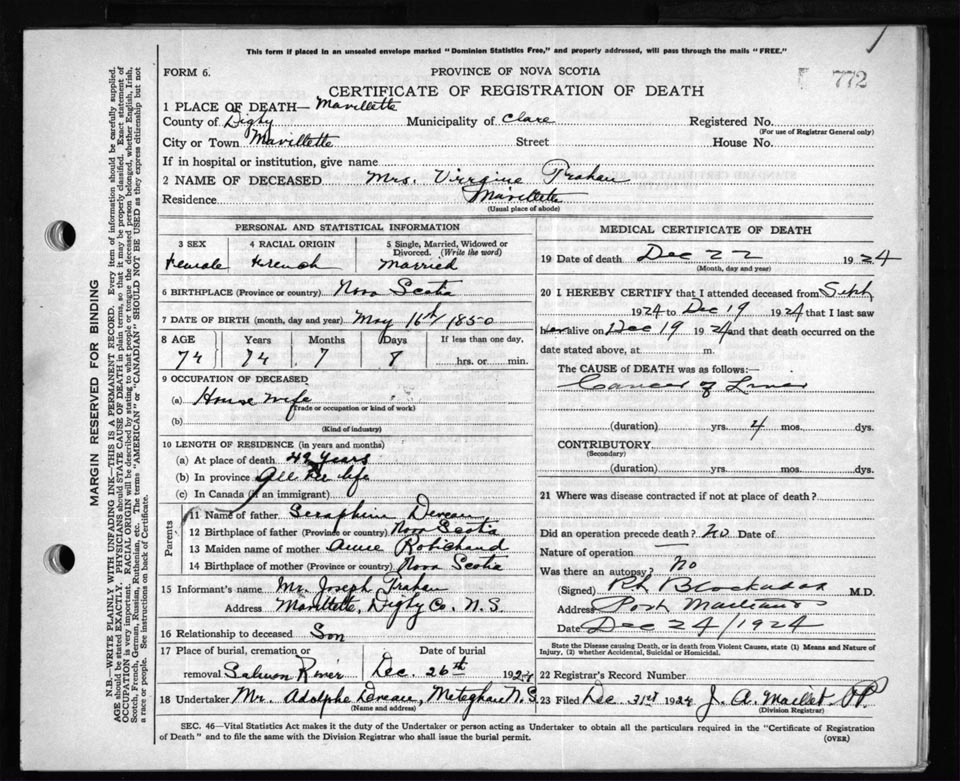 This form if placed in an unsealed envelope marked "Dominion Statistics Free," and properly addressed, will pass through the mails "FREE."
FORM 6.
PROVINCE OF NOVA SCOTIA
772
CERTIFICATE OF REGISTRATION OF DEATH
1 PLACE OF DEATH— Mavillette
County of Digby Municipality of Clare Registered No.
(For use of Registrar General only)
City or Town Mavillette Street House No.
If in hospital or institution, give name
2 NAME OF DECEASED Mrs. Virgine Trahan
Residence Mavillette
(Usual place of abode)
PERSONAL AND STATISTICAL INFORMATION
3 SEX 4 RACIAL ORIGIN 5 Single, Married, Widowed or Divorced. (Write the word)
Female French Married
6 BIRTHPLACE (Province or country) Nova Scotia
7 DATE OF BIRTH (month, day and year) May 16th 1850
8 AGE Years Months Days If less than one day,
74 74 7 8 hrs. or min.
9 OCCUPATION OF DECEASED
(a) House wife
(Trade or occupation or kind of work)
(b)
(Kind of industry)
10 LENGTH OF RESIDENCE (in years and months)
(a) At place of death 49 years
(b) In province All her life
(c) In Canada (if an immigrant)
Parents
11 Name of father Seraphin Deveau
12 Birthplace of father (Province or country) Nova Scotia
13 Maiden name of mother Annie Robichaud
14 Birthplace of mother (Province or country) Nova Scotia
15 Informant's name Mr. Joseph Trahan
Address Mavillette, Digby Co. N.S.
16 Relationship to deceased Son
17 Place of burial, cremation or Date of burial
removal Salmon River Dec. 26th 1924
18 Undertaker Mr. Adolphe Deveau, Meteghan N.S.
(Name and address)
MEDICAL CERTIFICATE OF DEATH
19 Date of death Dec 22 1924
(Month, day and year)
20 I HEREBY CERTIFY that I attended deceased from Sept
1924 to Dec 19 1924 that I last saw
her alive on Dec 19 1924 and that death occurred on the
date stated above, at m.
The CAUSE of DEATH was as follows:
Cancer of Liver
(duration) yrs. 4 mos. dys.
CONTRIBUTORY
(Secondary)
(duration) yrs. mos. dys.
21 Where was disease contracted if not at place of death?
Did an operation precede death? No Date of
Nature of operation
Was there an autopsy? No
(Signed) M.D.
Address Port Maitland
Date Dec 24/1924
State the Disease causing Death, or in death from Violent Causes, state (1) Means and Nature of Injury, (2) whether Accidental, Suicidal or Homicidal.
22 Registrar's Record Number
23 Filed Dec. 31st 1924 J. A. Maillet
(Division Registrar)
SEC. 46—Vital Statistics Act makes it the duty of the Undertaker or person acting as Undertaker to obtain all the particulars required in the "Certificate of Registration
of Death" and to file the same with the Division Registrar who shall issue the burial permit.
(OVER)
MARGIN RESERVED FOR BINDING
N.B.—WRITE PLAINLY WITH UNFADING INK—THIS IS A PERMANENT RECORD. Every item of information should be carefully supplied.
AGE should be stated EXACTLY. PHYSICIANS should STATE CAUSE OF DEATH in plain terms, so that it may be properly classified. Exact statement of
OCCUPATION is very important. RACIAL ORIGIN will be described by stating to what people or tongue the deceased person belonged, whether English, Irish,
Scotch, French, German, Russian, Ruthenian, etc. The terms "AMERICAN" or "CANADIAN" SHOULD NOT BE USED as they express citizenship but not
a race or people. See instructions on back of Certificate.